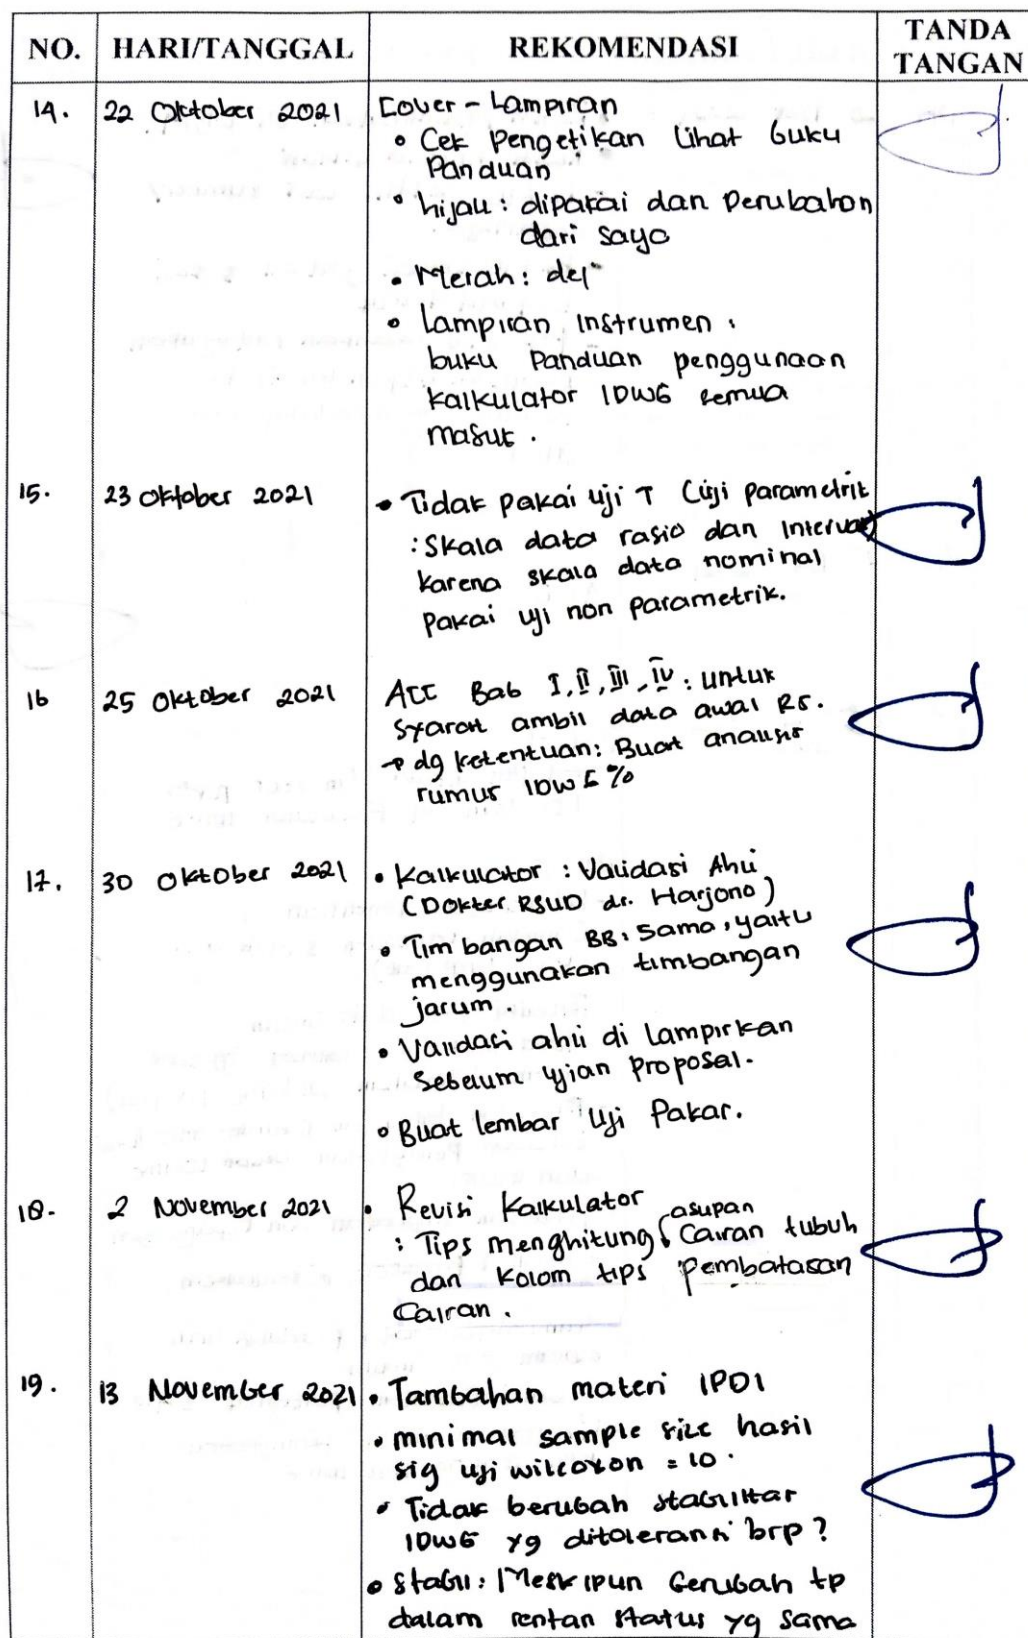 NO. HARI/TANGGAL REKOMENDASI TANDA TANGAN
14. 22 Oktober 2021 Cover - Lampiran
• Cek Pengetikan lihat buku
Panduan
• hijau : dipakai dan Perubahan
dari saya
• Merah : del
• Lampiran Instrumen :
buku Panduan penggunaan
kalkulator IDWG semua
masuk .
15. 23 Oktober 2021 • Tidak pakai uji T (uji parametrik
: Skala data rasio dan Interval)
karena skala data nominal
Pakai uji non parametrik.
16 25 Oktober 2021 ACC Bab I, II, III, IV : untuk
syarat ambil data awal RS.
→ dg ketentuan : Buat analisis
rumus IDWG %
17. 30 Oktober 2021 • Kalkulator : Validasi Ahli
(Dokter RSUD dr. Harjono)
• Timbangan BB : Sama, yaitu
menggunakan timbangan
jarum .
• Validasi ahli di Lampirkan
Sebelum ujian Proposal.
• Buat lembar Uji Pakar.
18. 2 November 2021 • Revisi Kalkulator
: Tips menghitung asupan Cairan tubuh
dan Kolom tips pembatasan
Cairan .
19. 13 November 2021 • Tambahan materi IPDI
• minimal sample size hasil
sig uji wilcoxon = 10 .
• Tidak berubah stabilitas
IDWG yg ditoleransi brp ?
• Stabil : Meskipun berubah tp
dalam rentan status yg sama